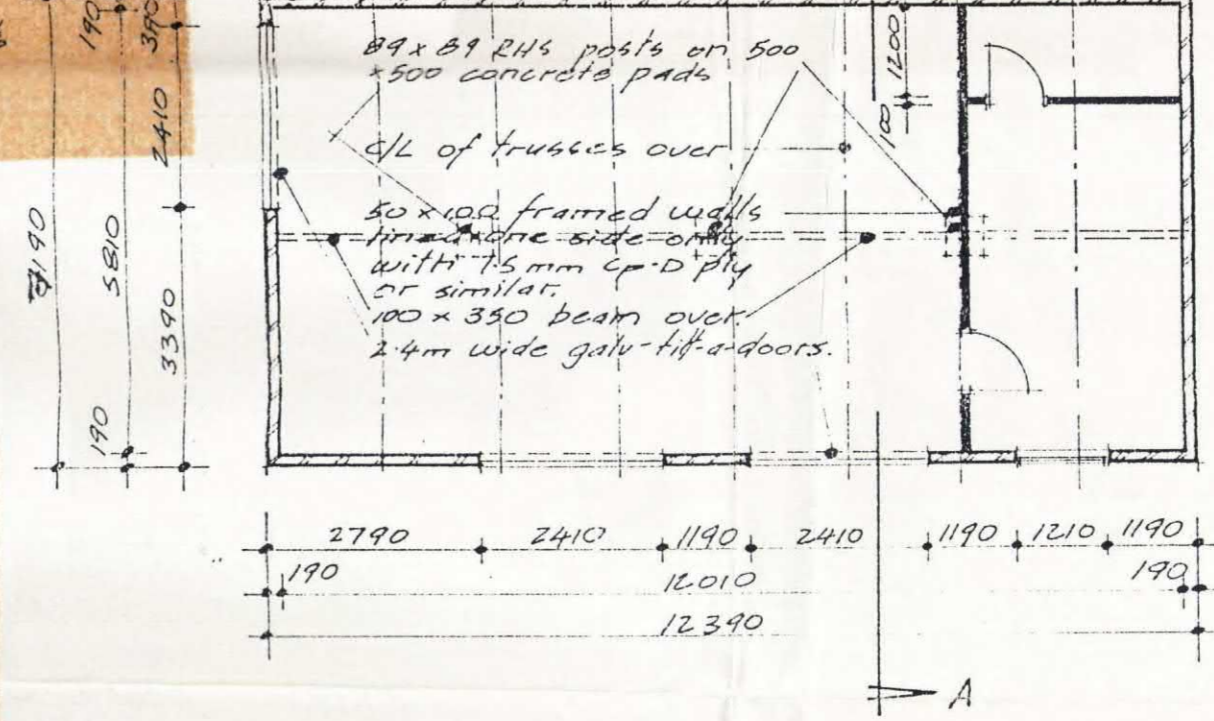 190
390
2410
7190
5810
3390
190
89 x 89 RHS posts on 500
x 500 concrete pads
C/L of trusses over
50 x 100 framed walls
lined one side only
with 15 mm cp-D ply
or similar.
100 x 350 beam over.
2.4m wide galv-tilt-a-doors.
1200
100
2790 2410 1190 2410 1190 1210 1190
190 12010 190
12390
A